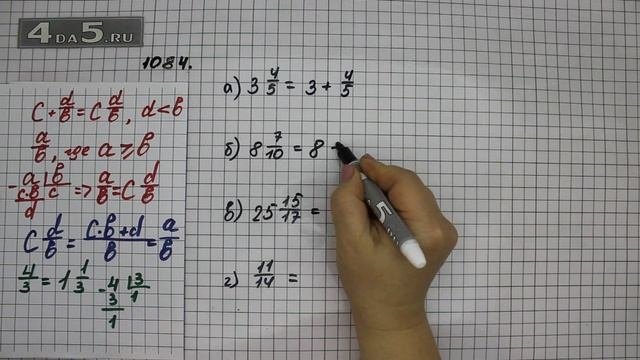 4DA5.RU
1084.
c + d/b = c d/b, d < b
a/b, где a ⩾ b
- a |b
c·b c
d
=> a/b = c d/b
c d/b = (c·b+d)/b = a/b
4/3 = 1 1/3
- 4 |3
3 1
1
а) 3 4/5 = 3 + 4/5
б) 8 7/10 = 8
в) 25 15/17 =
г) 11/14 =
5